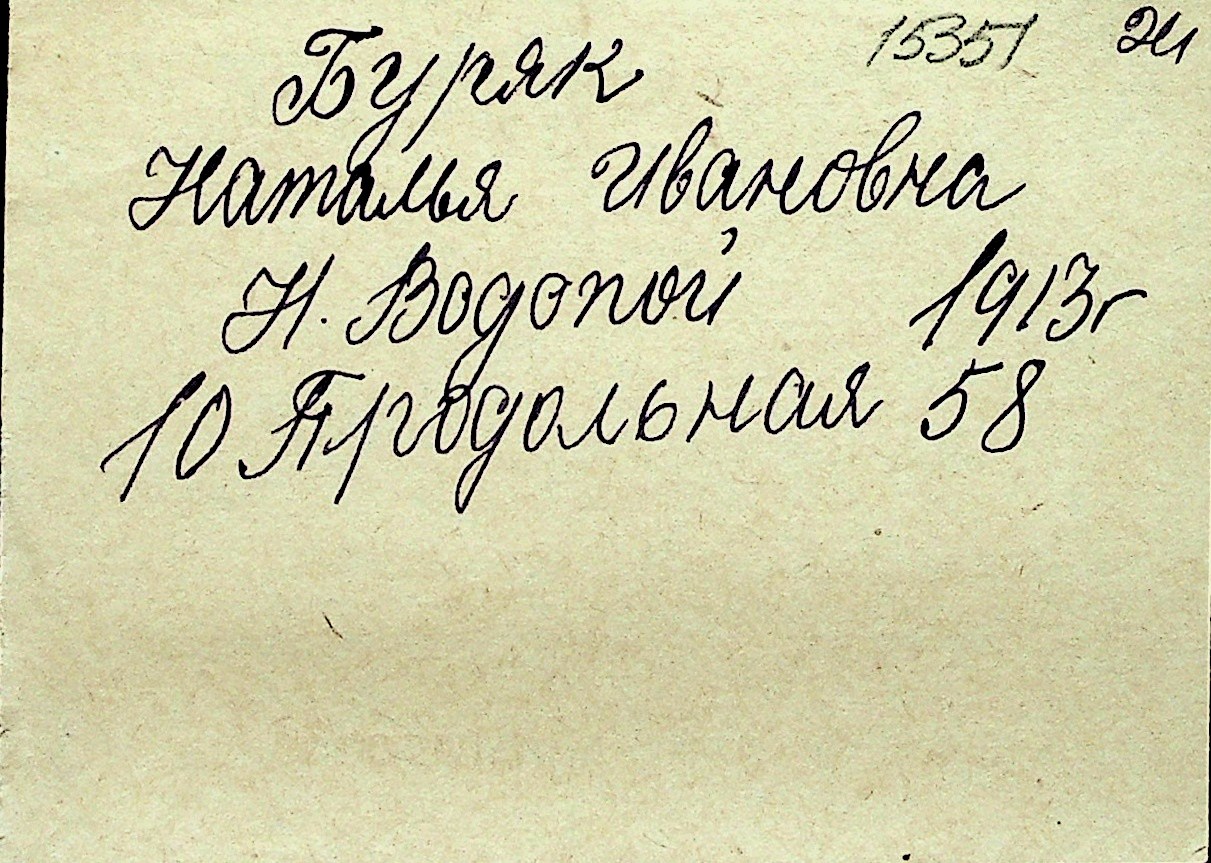 15351
Буряк
Наталья Ивановна
Н. Водопой 1913г
10 Продольная 58